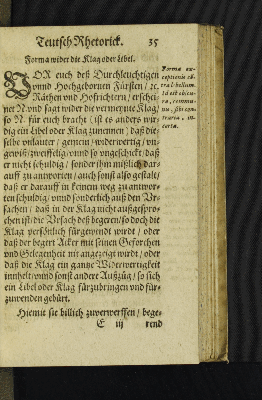 Teutsch Rhetorick. 35
Forma wider die Klag oder Libel.
VOR euch deß Durchleuchtigen
vnnd Hochgebornen Fürsten / ꝛc.
Räthen vnd Hofrichtern / erschei-
net N. vnd sagt wider die vermeynte Klag /
so N. für euch bracht (ist es anders wir-
dig ein Libel oder Klag zunennen) daß die-
selbe vnlauter / gemein / widerwertig / vn-
gewiß / zweiffelig / vnnd so vngeschickt / daß
er nicht schuldig / sonder ihm mißlich dar-
auff zu antworten / auch sonst also gestalt /
daß er darauff in keinem weg zu antwor-
ten schuldig / vnnd sonderlich auß den Vr-
sachen / daß in der Klag nicht außgespro-
chen ist die Vrsach deß begeren / so doch die
Klag persönlich fürgewendt wirdt / oder
daß der begert Acker mit seinen Geforchen
vnd Gelegenheit nit angezeigt wirdt / oder
daß die Klag ein gantze Widerwertigkeit
innhelt / vnnd sonst andere Außzüg / so sich
ein Libel oder Klag fürzubringen vnd für-
zuwenden gebürt.
Hiemit sie billich zuverwerffen / bege-
E iij rend
Forma ex-
ceptionis cō-
tra libellum
si est obscu-
rus, commu-
nis, sibi con-
trarius, in-
certus.